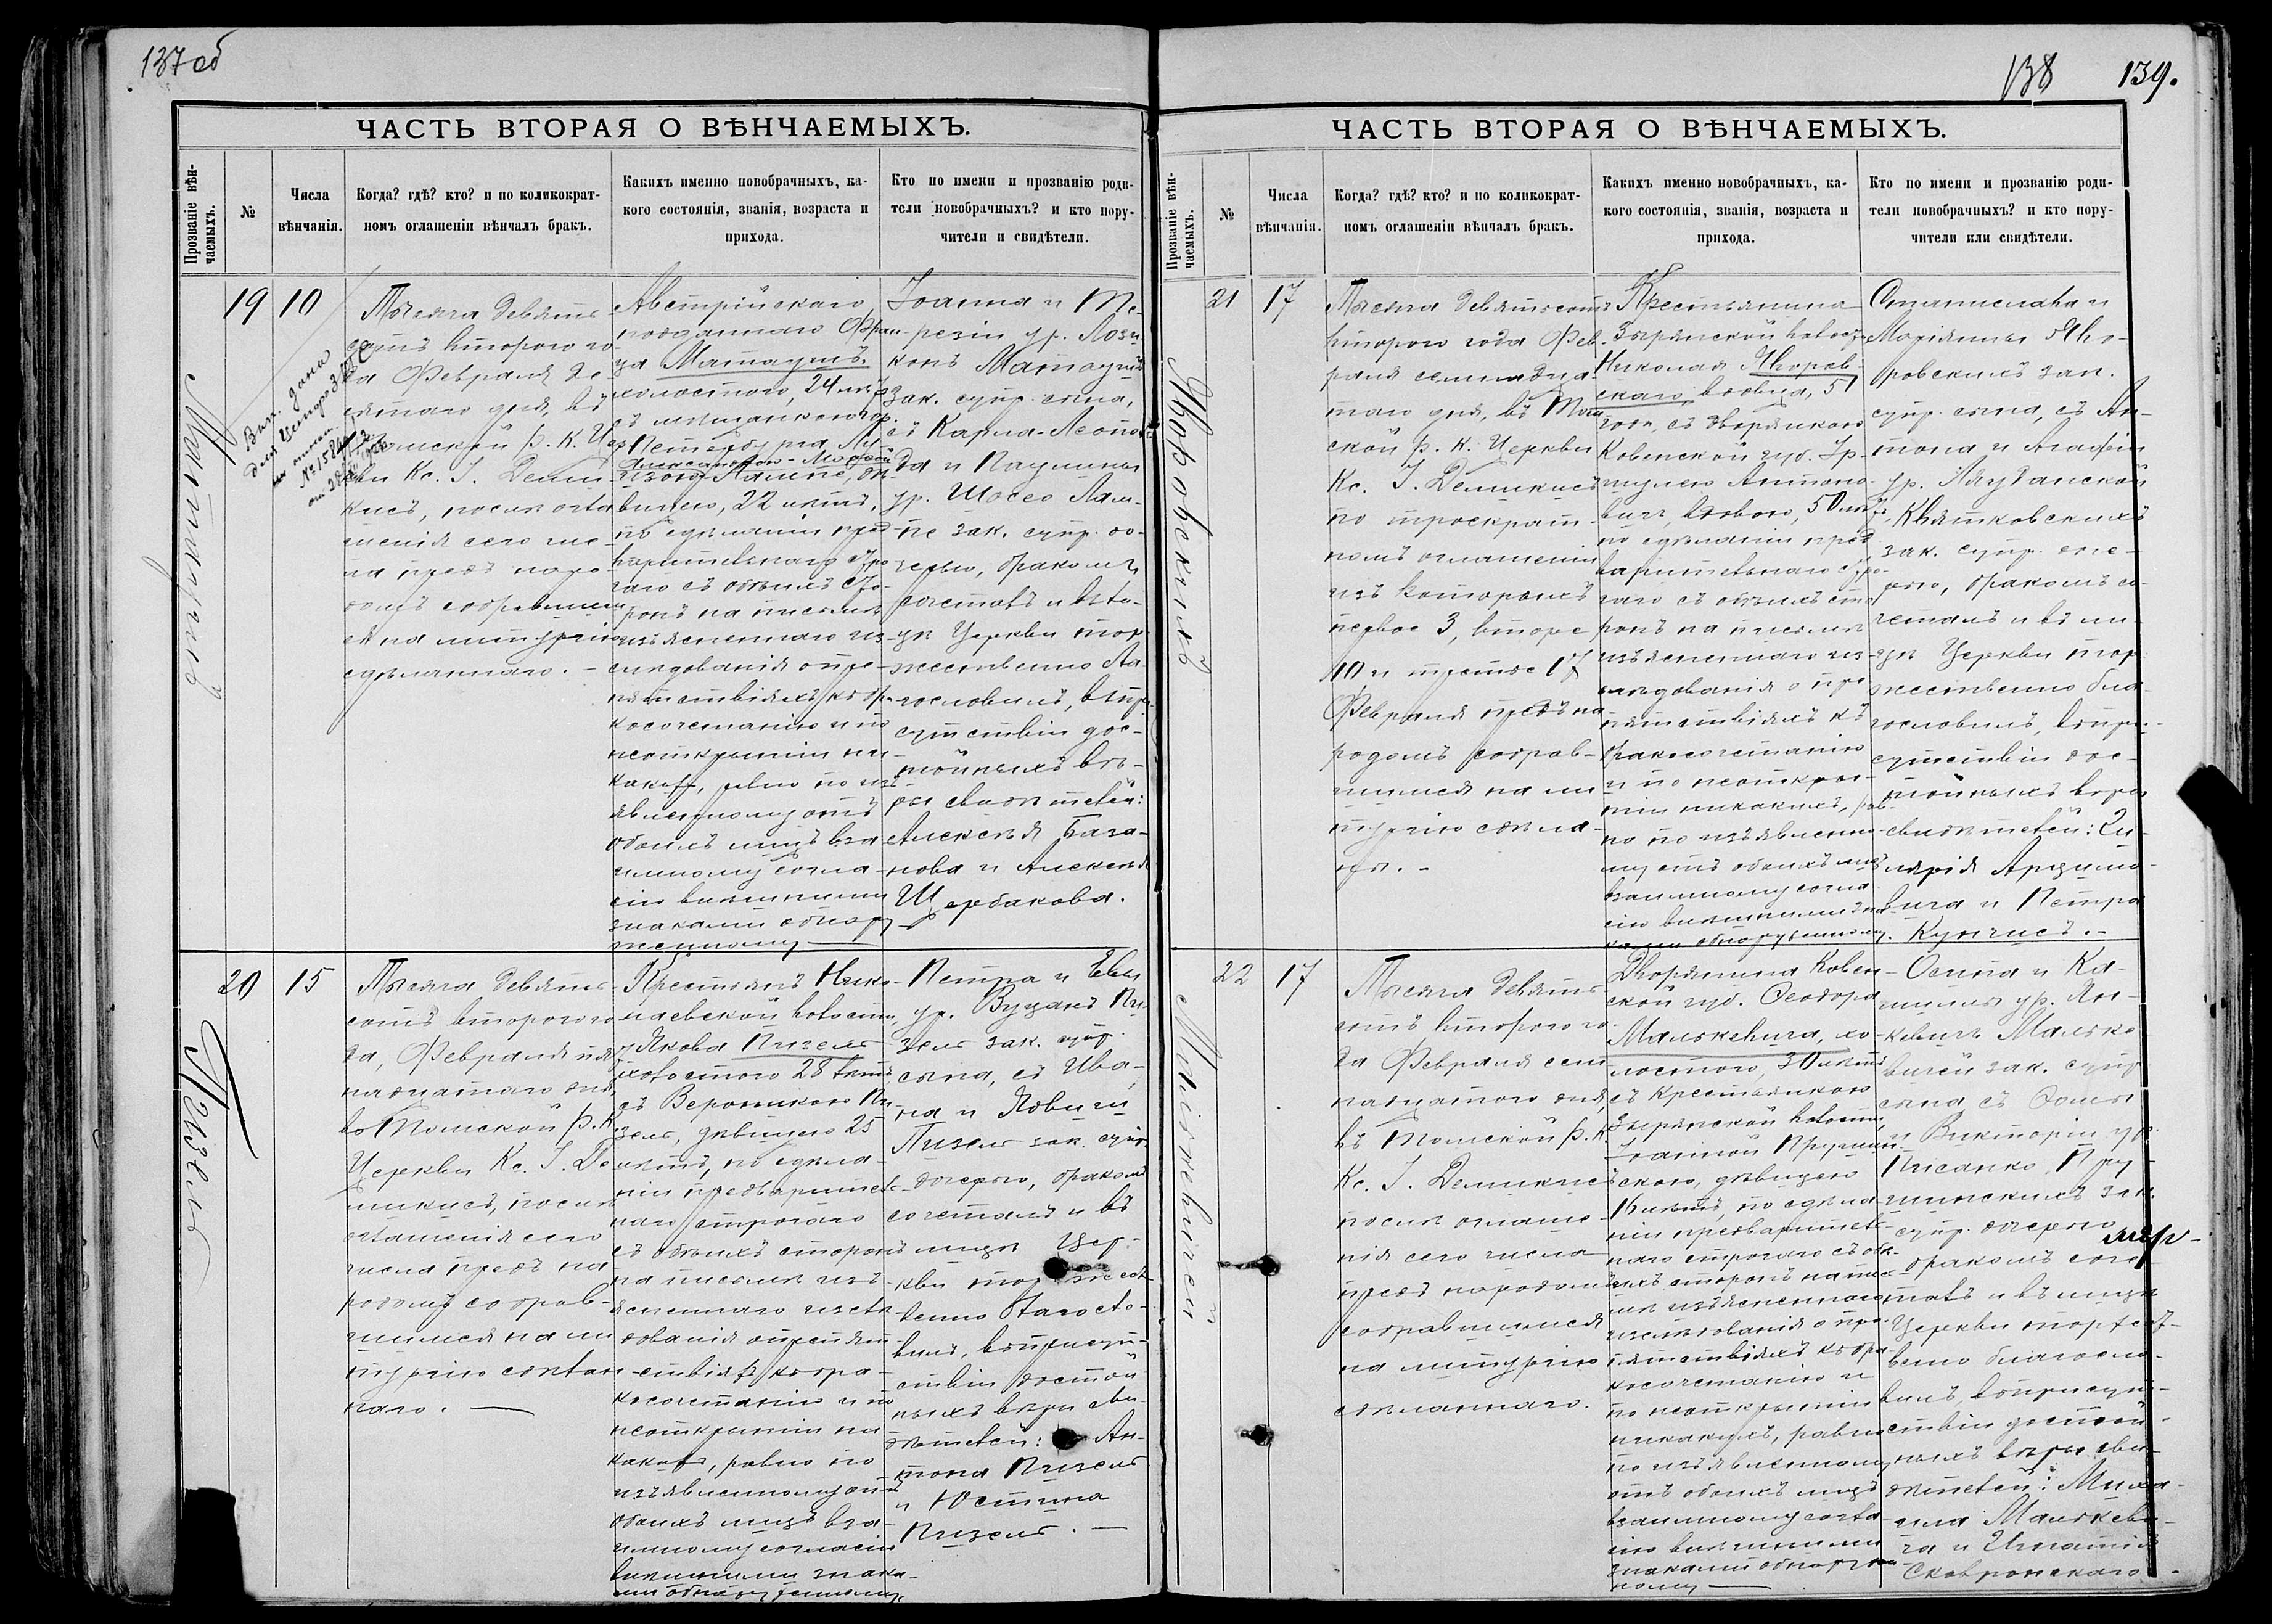 137 об
ЧАСТЬ ВТОРАЯ О ВѢНЧАЕМЫХЪ.
Прозваніе вѣн-
чаемыхъ.
№
Числа
вѣнчанія.
Когда? гдѣ? кто? и по коликократ-
номъ оглашеніи вѣнчалъ бракъ.
Какихъ именно новобрачныхъ, ка-
кого состоянія, званія, возраста и
прихода.
Кто по имени и прозванію роди-
тели новобрачныхъ? и кто пору-
чители и свидѣтели.
Матаушъ
19
10
Тысяча девять-
сотъ второго го-
да Февраля де-
сятаго дня, въ
Томской р. К. Цер-
кви Кс. І. Деми-
кисъ, послѣ огла-
шенія сего чис-
ла предъ наро-
домъ собравшим-
ся на литургію
сдѣланнаго. -
Австрійскаго
подданнаго Фран-
ца Матаушъ
холостого, 24 лѣтъ
съ мѣщанкою гор.
Петербурга
22 лѣтъ,
по сдѣланіи пред-
варительнаго стро-
гаго съ обѣихъ сто-
ронъ на письмѣ
изъясненнаго из-
слѣдованія о пре-
пятствіяхъ къ бра-
косочетанію и по
неоткрытіи ни-
какихъ, равно по изъ-
явленному отъ
обоихъ лицъ вза-
имному согла-
сію внѣшними
знаками обнару-
женному
Іоанна и Те-
резіи ур.
Матаушъ
зак. супр. сына,
съ Карла-Леополь-
да и Паулины
ур. Шосео Лам-
пе зак. супр. до-
черью, бракомъ
сочеталъ и въ ли-
цѣ Церкви тор-
жественно бла-
гословилъ, въ при-
сутствіи дос-
тойныхъ вѣ-
ры свидѣтелей:
Алексѣя База-
нова и Алексѣя
Щербакова.
Пизель
20
15
Тысяча девять-
сотъ второго го-
да, Февраля пят-
надцатаго дня,
въ Томской р. К.
Церкви Кс. І. Де-
микисъ, послѣ
оглашенія сего
числа предъ на-
родомъ собрав-
шимся на ли-
тургію сдѣлан-
наго. -
Крестьянъ Нико-
лаевской волости,
Якова Пизель
холостого 28 лѣтъ
съ Вероникою Пи-
зель, дѣвицею 25
лѣтъ, по сдѣла-
ніи предварител-
наго строгаго
съ обѣихъ сторонъ
на письмѣ изъ-
ясненнаго изслѣ-
дованія о препят-
ствіяхъ къ бра-
косочетанію и по
неоткрытіи ни-
какихъ, равно по
изъявленному отъ
обоихъ лицъ вза-
имному согласію
внѣшними знака-
ми обнаруженному.
Петра и Евы
ур. Вуцанъ Пи-
зель зак. супр.
сына, съ Ива-
на и Ядвиги
Пизель зак. супр.
дочерью, бракомъ
сочеталъ и въ
лицѣ Цер-
кви торжест-
венно благосло-
вилъ, въ присут-
ствіи достой-
ныхъ вѣры сви-
дѣтелей: Ан-
тона Пизель
и Юстина
Пизель. -
138
139.
ЧАСТЬ ВТОРАЯ О ВѢНЧАЕМЫХЪ.
Прозваніе вѣн-
чаемыхъ.
№
Числа
вѣнчанія.
Когда? гдѣ? кто? и по коликократ-
номъ оглашеніи вѣнчалъ бракъ.
Какихъ именно новобрачныхъ, ка-
кого состоянія, званія, возраста и
прихода.
Кто по имени и прозванію роди-
тели новобрачныхъ? и кто пору-
чители или свидѣтели.
Яворовскій
21
17
Тысяча девятьсотъ
второго года Фев-
раля семнадца-
таго дня, въ Том-
ской р. К. Церкви
Кс. І. Демикисъ
по троекрат-
номъ оглашеніи
изъ которыхъ
первое 3, второе
10 и третье 17
Февраля предъ на-
родомъ собрав-
шимся на ли-
тургію сдѣла-
но. -
Крестьянина
Зырянской волости
Николая Яворов-
скаго, вдовца, 51
года, съ дворянкою
Ковенской губ. Ур-
шулею Антоно-
вичъ, вдовою, 50 лѣтъ,
по сдѣланіи пред-
варительнаго стро-
гаго съ обѣихъ сто-
ронъ на письмѣ
изъясненнаго из-
слѣдованія о пре-
пятствіяхъ къ
бракосочетанію
и по неоткры-
тіи никакихъ, рав-
но по изъявленно-
му отъ обоихъ лицъ
взаимному согла-
сію внѣшними зна-
ками обнаруженному.
Станислава и
Маріянны Яво-
ровскихъ зак.
супр. сына, съ Ан-
тона и Агафіи
ур.
Квятковскихъ
зак. супр. доче-
рью, бракомъ со-
четалъ и въ ли-
цѣ Церкви тор-
жественно бла-
гословилъ, въ при-
сутствіи дос-
тойныхъ вѣры
свидѣтелей:
Арцимо-
вича и Петра
Кунчисъ. -
Малькевичей
22
17
Тысяча девять-
сотъ второго го-
да Февраля сем-
надцатаго дня,
въ Томской р. К.
Кс. І. Демикисъ
послѣ оглаше-
нія сего числа
предъ народомъ
собравшимся
на литургію
сдѣланнаго.
Дворянина Ковен-
ской губ. Феодора
Малькевича, хо-
лостого, 30 лѣтъ
съ крестьянкою
Зырянской волости,
Прушин-
скою, дѣвицею
16 лѣтъ, по сдѣла-
ніи предварител-
наго строгаго съ обѣ-
ихъ сторонъ на пись-
мѣ изъясненнаго
изслѣдованія о пре-
пятствіяхъ къ бра-
косочетанію и
по неоткрытіи
никакихъ, равно
по изъявленному
отъ обоихъ лицъ
взаимному согла-
сію внѣшними
знаками обнаружен-
ному
Осипа и Ка-
ур. Ян-
кевичъ Мальке-
вичей зак. супр.
сына съ Фомы
и Викторіи ур.
Писанко Пру-
шинскихъ зак.
супр. дочерью
бракомъ соче-
талъ и въ лицѣ
Церкви торжест-
венно благосло-
вилъ, въ присут-
ствіи достой-
ныхъ вѣры сви-
дѣтелей: Миха-
ила Малькеви-
ча и Игнатія
Сквронскаго -